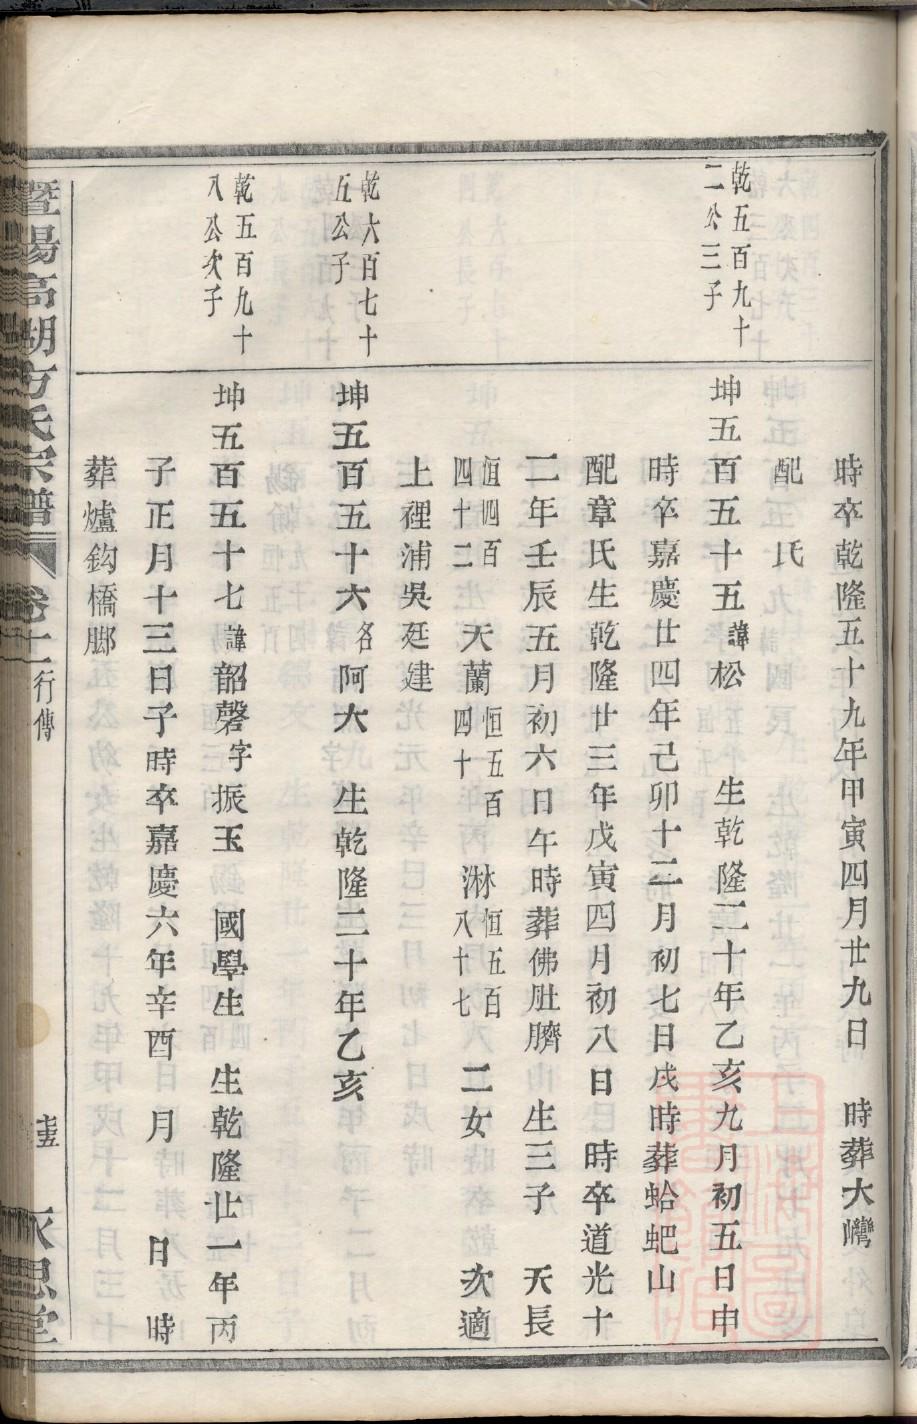 時卒乾隆五十九年甲寅四月廿九日　時葬大灣
配　氏
乾五百九十
二公三子
坤五百五十五諱松　生乾隆二十年乙亥九月初五日申
時卒嘉慶廿四年己卯十二月初七日戌時葬蛤蚆山
配章氏生乾隆廿三年戊寅四月初八日　時卒道光十
二年壬辰五月初六日午時葬佛肚臍　生三子　天長
恒四百
四十二　天蘭恒五百
四十　淋恒五百
八十七　二女　次適
上裡浦吳廷建
乾六百七十
五公子
坤五百五十六名阿六　生乾隆二十年乙亥
乾五百九十
八公次子
坤五百五十七諱韶磬字振玉　國學生　生乾隆廿一年丙
子正月十三日子時卒嘉慶六年辛酉　月　日　時
葬爐鈎橋腳
暨陽高湖方氏宗譜　卷十一　行傳　永思堂